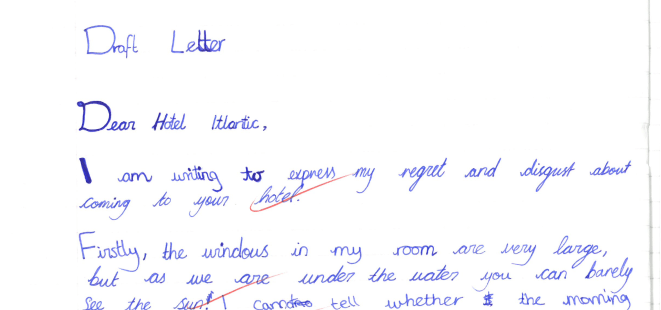 Draft Letter
Dear Hotel Itlantic,
I am writing to express my regret and disgust about
coming to your hotel.
Firstly, the windows in my room are very large,
but as we are under the water you can barely
see the sun! I cannot tell whether the morning